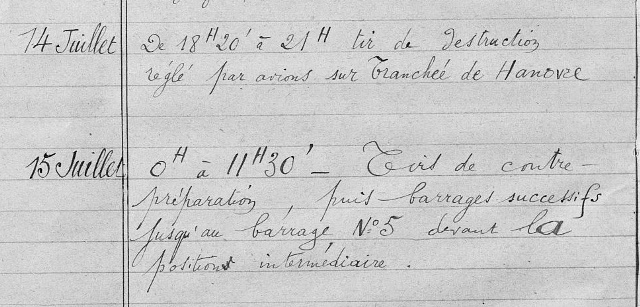 14 Juillet De 18H20' à 21H tir de destruction
réglé par avions sur Tranchée de Hanovre
15 Juillet 0H à 11H30' - Tirs de contre-
préparation, puis barrages successifs
jusqu'au barrage No 5 devant la
position intermédiaire.